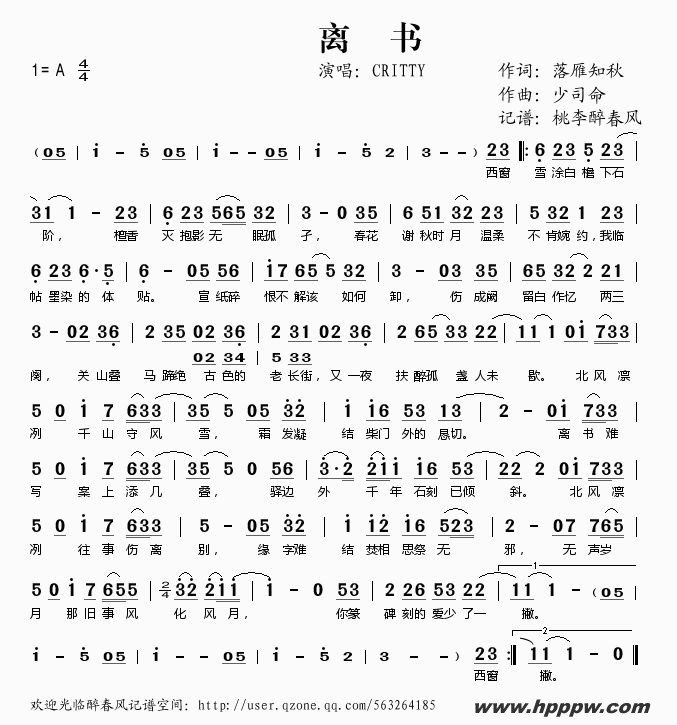 离 书
1=A 4/4
演唱：CRITTY
作词：落雁知秋
作曲：少司命
记谱：桃李醉春风
（05 | i - 5 05 | i - 5 05 | i - 5 2 | 3 - -） 23 ‖: 6 23 5 23 |
西窗 雪 涂白 檐 下石
31 1 - 23 | 6 23 565 32 | 3 - 0 35 | 6 51 32 23 | 5 32 1 23 |
阶， 檀香 灭 抱影无 眠孤 孑， 春花 谢 秋时 月 温柔 不 肯婉 约，我临
6 23 6·5 | 6 - 05 56 | i7 65 5 35 | 3 - 03 35 | 65 32 2 21 |
帖 墨染 的 体 贴。 宣 纸碎 恨不 解该 如何 卸， 伤 成阙 留白 作忆 两三
3 - 02 36 | 2 35 02 36 | 2 31 02 36 | 2 65 33 22 | 11 1 0i 733 |
02 34 | 5 33
阕， 关 山叠 马 蹄绝 古 色的 老 长街，又 一夜 扶 醉孤 盏 人未 歇。 北 风 凛
5 0 i 7 633 | 35 5 05 32 | i 17 63 53 13 | 2 - 0i 733 |
冽 千 山 守 风 雪， 霜 发凝 结 柴门 外的 悬切。 离 书 难
5 0 i 7 633 | 35 5 0 56 | 3·2 211 16 53 | 22 2 0i 733 |
写 案 上 添 几 叠， 驿边 外 千 年 石刻 已倾 斜。 北 风 凛
5 0 i 7 633 | 5 - 05 32 | i 12 16 523 | 2 - 07 765 |
冽 往 事 伤 离 别， 缘 字难 结 焚相 思祭 无 邪， 无 声岁
5 0 i 7 655 | 2/4 32 211 | 1 - 0 53 | 2 23 53 22 | 11 1 - （05 |
1
月 那 旧 事 风 化 风 月， 你篆 碑 刻的 爱少 了一 撇。
i - 5 05 | i - 5 05 | i - 5 2 | 3 - -） 23 :‖ 11 1 - 0 ‖
2
西窗 撇。
欢迎光临醉春风记谱空间：http://user.qzone.qq.com/563264185
www.hpppw.com